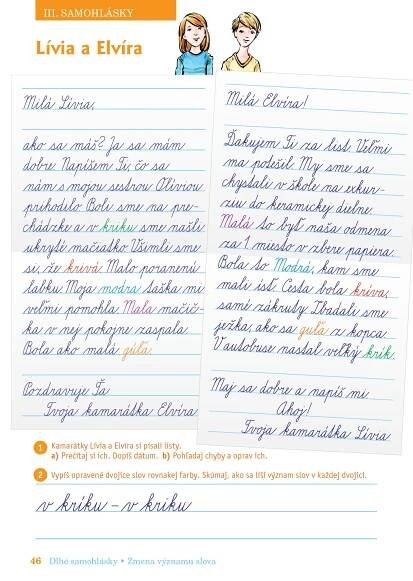 III. SAMOHLÁSKY
Lívia a Elvíra
Milá Lívia,
ako sa máš? Ja sa mám
dobre. Napíšem Ti, čo sa
nám s mojou sestrou Oliviou
prihodilo. Boli sme na pre-
chádzke a v kriku sme našli
ukryté mačiatko. Všimli sme
si, že krivá. Malo poranenú
labku. Moja modra taška mi
veľmi pomohla. Mala mačič-
ka v nej pokojne zaspala.
Bola ako malá gúľa.
Pozdravuje Ťa
Tvoja kamarátka Elvíra
Milá Elvíra!
Ďakujem Ti za list. Veľmi
ma potešil. My sme sa
chystali v škole na exkur-
ziu do keramickej dielne.
Malá to byť naša odmena
za 1. miesto v zbere papiera.
Bola to Modrá, kam sme
mali ísť. Cesta bola kríva,
samé zákruty. Zbadali sme
ježka, ako sa guľa z kopca.
V autobuse nastal veľký krik.
Maj sa dobre a napíš mi.
Ahoj!
Tvoja kamarátka Lívia
1 Kamarátky Lívia a Elvíra si písali listy.
a) Prečítaj si ich. Dopíš dátum. b) Pohľadaj chyby a oprav ich.
2 Vypíš opravené dvojice slov rovnakej farby. Skúmaj, ako sa líši význam slov v každej dvojici.
v kríku – v kriku
46 Dlhé samohlásky • Zmena významu slova